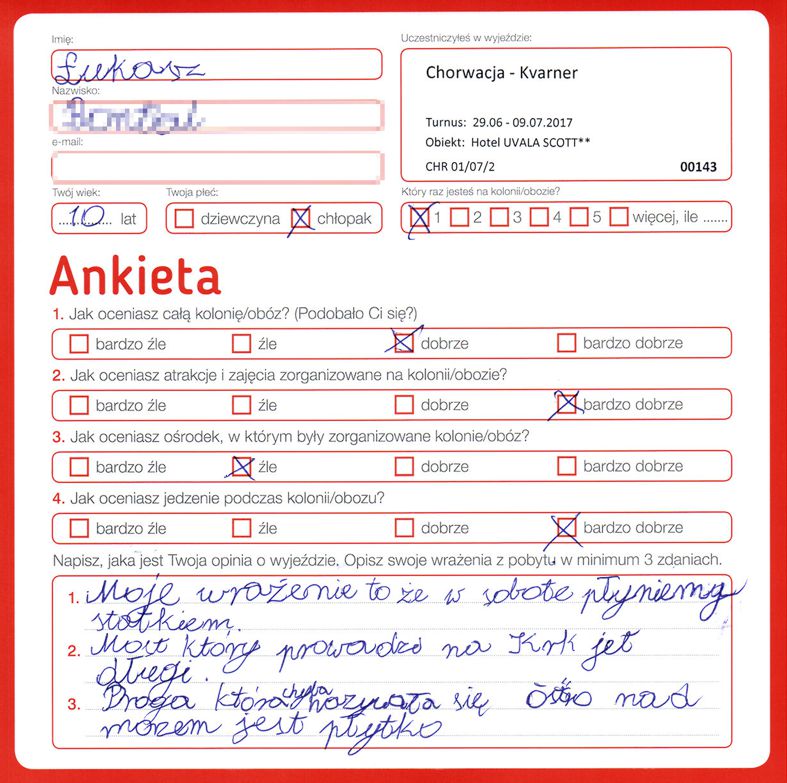 Imię:
Łukasz
Nazwisko:
e-mail:
Twój wiek:
10 lat
Twoja płeć:
dziewczyna chłopak
Uczestniczyłeś w wyjeździe:
Chorwacja - Kvarner
Turnus: 29.06 - 09.07.2017
Obiekt: Hotel UVALA SCOTT**
CHR 01/07/2 00143
Który raz jesteś na kolonii/obozie?
1 2 3 4 5 więcej, ile .......
Ankieta
1. Jak oceniasz całą kolonię/obóz? (Podobało Ci się?)
bardzo źle źle dobrze bardzo dobrze
2. Jak oceniasz atrakcje i zajęcia zorganizowane na kolonii/obozie?
bardzo źle źle dobrze bardzo dobrze
3. Jak oceniasz ośrodek, w którym były zorganizowane kolonie/obóz?
bardzo źle źle dobrze bardzo dobrze
4. Jak oceniasz jedzenie podczas kolonii/obozu?
bardzo źle źle dobrze bardzo dobrze
Napisz, jaka jest Twoja opinia o wyjeździe. Opisz swoje wrażenia z pobytu w minimum 3 zdaniach.
1. Moje wrażenie to że w sobote płyniemy
statkiem.
2. Most który prowadzi na Krk jet
długi.
3. Droga która chyba nazywała się nad
mozem jest płytko